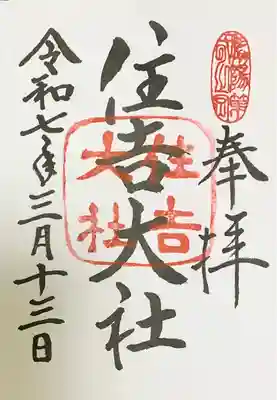 奉拝
住吉大社
住吉大社
令和七年三月十三日